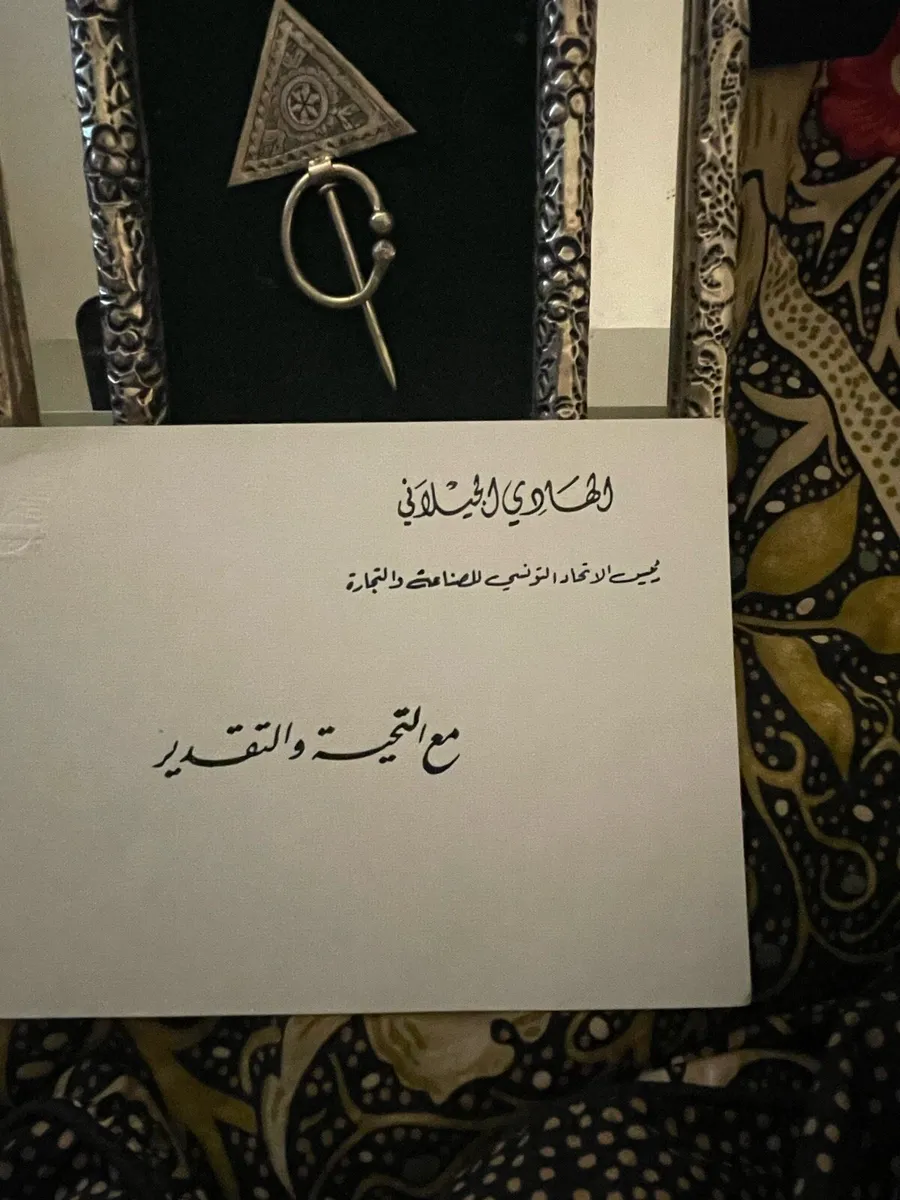 الهَادِي الجيْلاَني
رئيس الاتحاد التونسي للصناعة والتجارة
مع التحية والتقدير